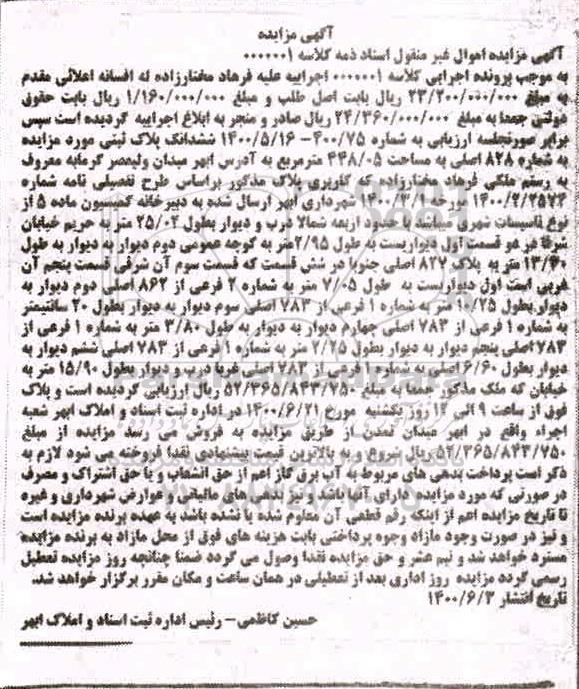 آگهی مزایده
آگهی مزایده اموال غیر منقول اسناد ذمه کلاسه ۰۰۰۰۰۰۱
به موجب پرونده اجرایی کلاسه ۰۰۰۰۰۰۱ اجراییه علیه فرهاد مختارزاده له افسانه اعلائی مقدم
به مبلغ ۲۳/۲۰۰/۰۰۰/۰۰۰ ریال بابت اصل طلب و مبلغ ۱/۱۶۰/۰۰۰/۰۰۰ ریال بابت حقوق
دولتی جمعا به مبلغ ۲۴/۳۶۰/۰۰۰/۰۰۰ ریال صادر و منجر به ابلاغ اجراییه گردیده است سپس
برابر صورتجلسه ارزیابی به شماره ۴۰۰/۷۵- ۱۴۰۰/۵/۱۶ ششدانگ پلاک ثبتی مورد مزایده
به شماره ۸۲۸ اصلی به مساحت ۴۴۸/۰۵ مترمربع به آدرس ابهر میدان ولیعصر گرمابه معروف
به رستم ملکی فرهاد مختارزاده که کاربری پلاک مذکور براساس طرح تفصیلی نامه شماره
۱۴۰۰/۲/۲۵۷۴ مورخه ۱۴۰۰/۳/۱ شهرداری ابهر ارسال شده به دبیرخانه کمیسیون ماده ۵ از
نوع تاسیسات شهری میباشد با حدود اربعه شمالا درب و دیوار بطول ۲۵/۰۲ متر به حریم خیابان
شرقا در دو قسمت اول دیواریست به طول ۲/۹۵ متر به کوچه عمومی دوم دیوار به دیوار به طول
۱۳/۶۰ متر به پلاک ۸۲۷ اصلی جنوبا در شش قسمت که قسمت سوم آن شرقی قسمت پنجم آن
غربی است اول دیواریست به طول ۷/۰۵ متر به شماره ۲ فرعی از ۸۶۲ اصلی دوم دیوار به
دیوار بطول ۹/۲۵ متر به شماره ۱ فرعی از ۷۸۳ اصلی سوم دیوار به دیوار بطول ۲۰ سانتیمتر
به شماره ۱ فرعی از ۷۸۳ اصلی چهارم دیوار به دیوار به طول ۳/۸۰ متر به شماره ۱ فرعی از
۷۸۳ اصلی پنجم دیوار به دیوار بطول ۲/۷۵ متر به شماره ۱ فرعی از ۷۸۳ اصلی ششم دیوار به
دیوار بطول ۶/۶۰ اصلی به شماره ۱ فرعی از ۷۸۳ اصلی غربا درب و دیوار بطول ۱۵/۹۰ متر به
خیابان که ملک مذکور جمعا به مبلغ ۵۲/۳۶۵/۸۴۳/۷۵۰ ریال ارزیابی گردیده است و پلاک
فوق از ساعت ۹ الی ۱۲ روز یکشنبه مورخ ۱۴۰۰/۶/۲۱ در اداره ثبت اسناد و املاک ابهر شعبه
اجراء واقع در ابهر میدان تمدن از طریق مزایده به فروش می رسد مزایده از مبلغ
۵۲/۳۶۵/۸۴۳/۷۵۰ ریال شروع و به بالاترین قیمت پیشنهادی نقدا فروخته می شود لازم به
ذکر است پرداخت بدهی های مربوط به آب برق گاز اعم از حق انشعاب و یا حق اشتراک و مصرف
در صورتی که مورد مزایده دارای آنها باشد و نیز بدهی های مالیاتی و عوارض شهرداری و غیره
تا تاریخ مزایده اعم از اینکه رقم قطعی آن معلوم شده یا نشده باشد به عهده برنده مزایده است
و نیز در صورت وجود مازاد وجوه پرداختی بابت هزینه های فوق از محل مازاد به برنده مزایده
مسترد خواهد شد و نیم عشر و حق مزایده نقدا وصول می گردد ضمنا چنانچه روز مزایده تعطیل
رسمی گردد مزایده روز اداری بعد از تعطیلی در همان ساعت و مکان مقرر برگزار خواهد شد.
تاریخ انتشار ۱۴۰۰/۶/۳
حسین کاظمی- رئیس اداره ثبت اسناد و املاک ابهر